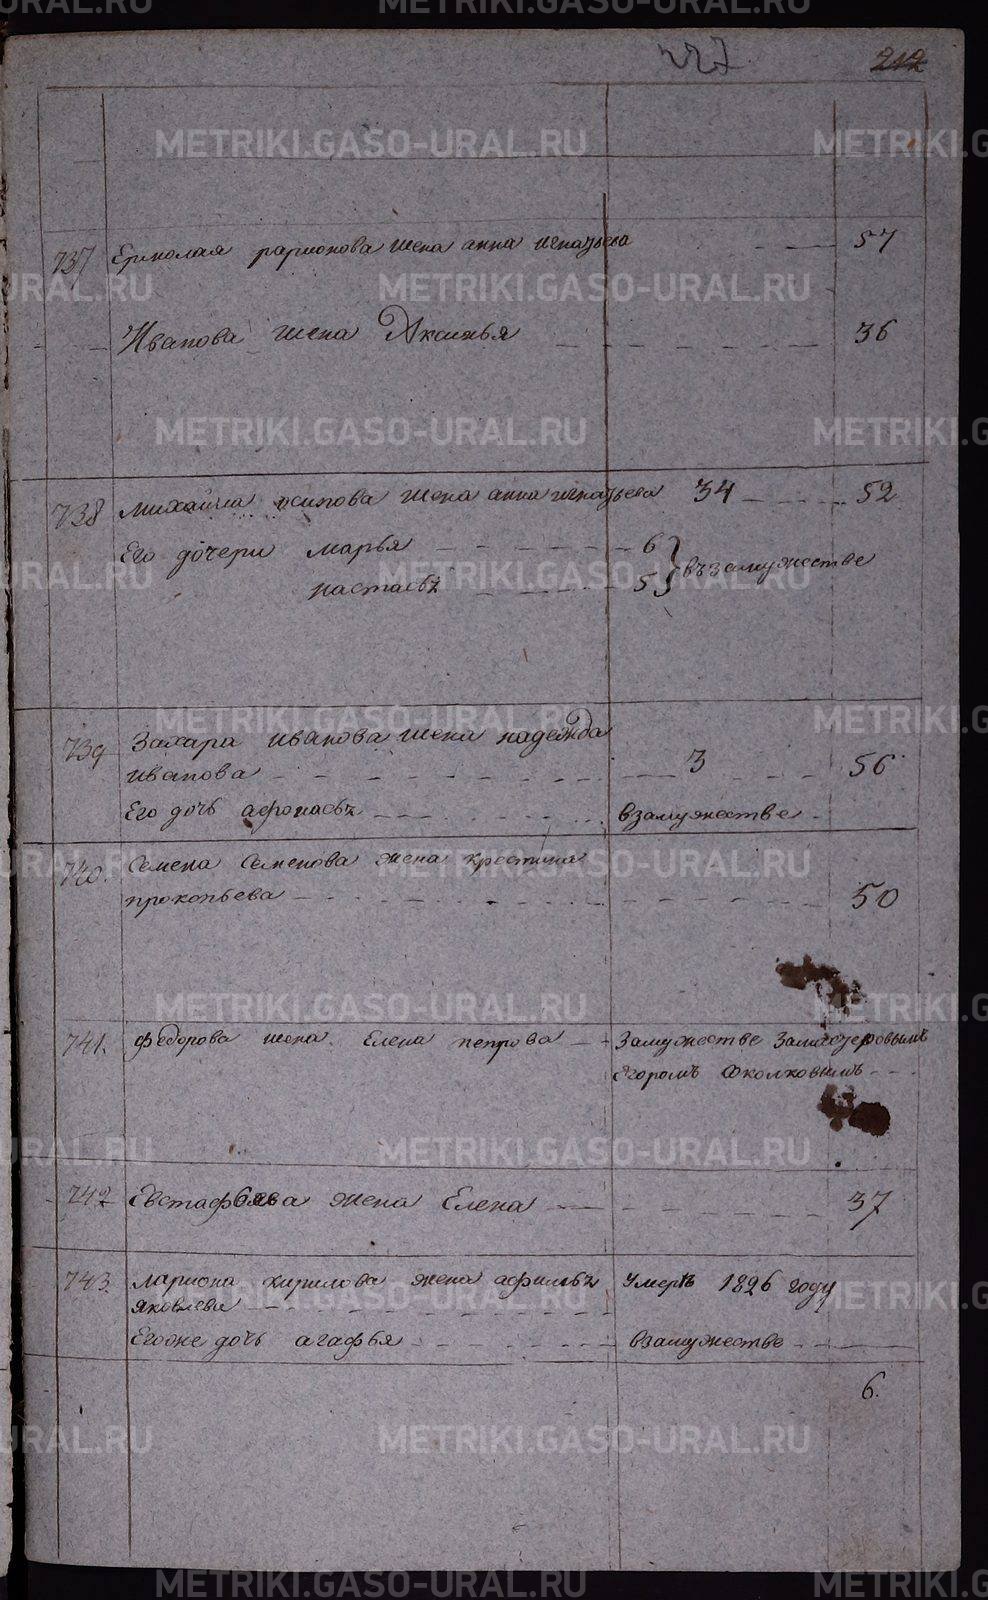 227 212
737 Ермолая рарионова жена анна игнатьева 57
Ивапова жена Аксинья 36
738 михайла осипова жена анна игнатьева 34 52
Его дочери марья 6
настасьъ 5 } въ замужестве
739 Захара ивапова жена надежда
ивапова 3 56
Его дочь афонасьъ взамужестве
740. Семена Семенова жена крестина
прокопьева 50
741. Федорова жена Елена петрова Замужестве
Егоромъ
742 Евстафьева жена Елена 37
743 лариона кирилова жена Умерлъ 1826 году
Яковлева
Егоже дочь агафья взамужестве
6.
METRIKI.GASO-URAL.RU